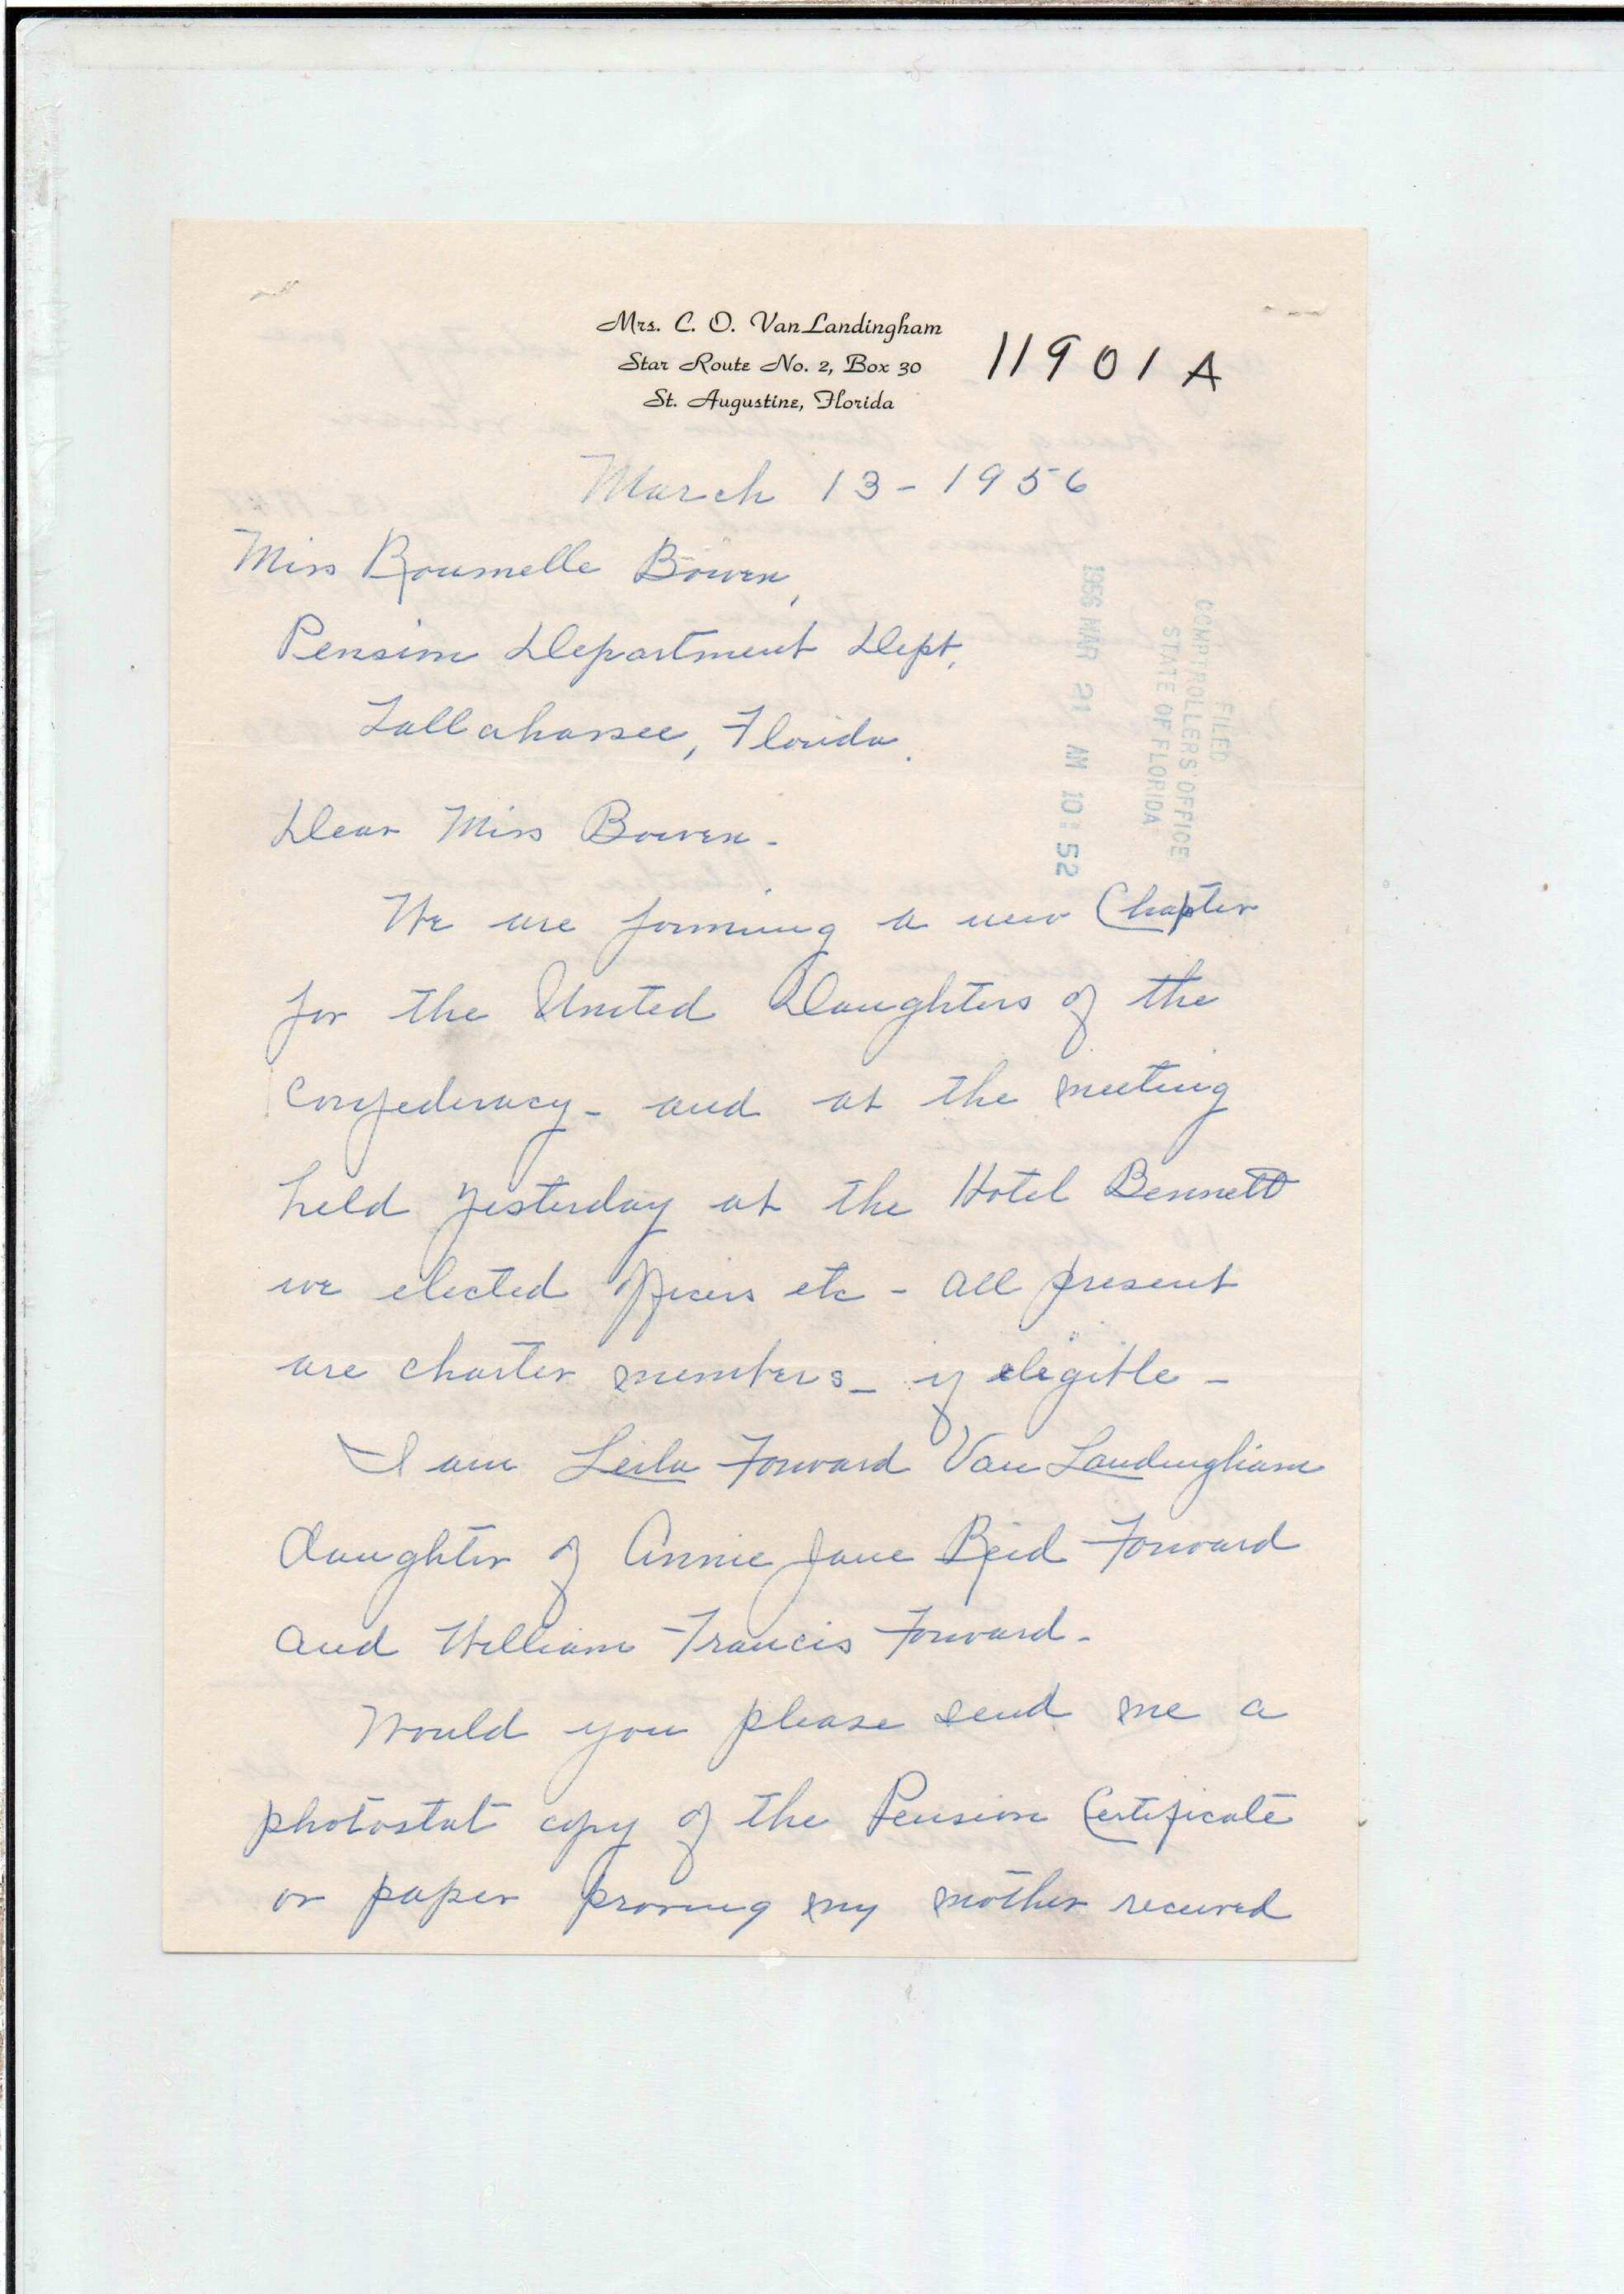 Mrs. C. O. Van Landingham
Star Route No. 2, Box 30
St. Augustine, Florida
11901 A
March 13 - 1956
Miss Roumelle Bowen,
Pension Department Dept,
Tallahassee, Florida.
FILED
COMPTROLLERS OFFICE
STATE OF FLORIDA
1956 MAR 21 AM 10:52
Dear Miss Bowen -
We are forming a new Chapter
for the United Daughters of the
Confederacy - and at the meeting
held yesterday at the Hotel Bennett
we elected officers etc - all present
are charter members - if elegible -
I am Leila Forward Van Landingham
daughter of Annie Jane Reid Forward
and William Francis Forward -
Would you please send me a
photostat copy of the Pension Certificate
or paper proving my mother received